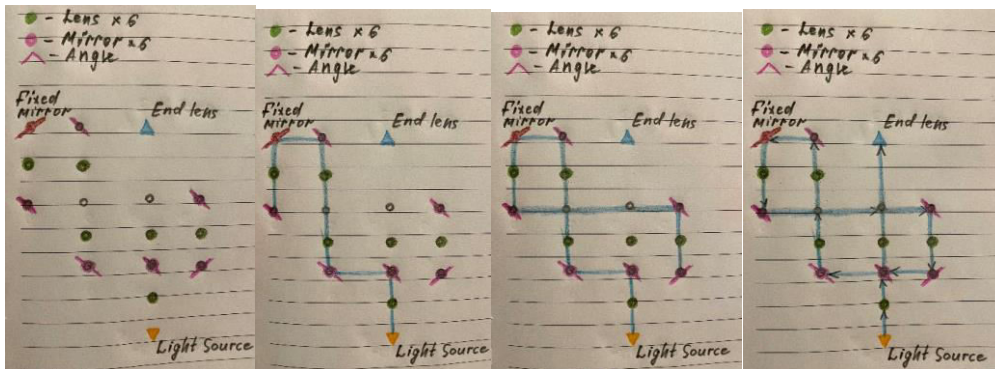 - Lens × 6
- Mirror × 6
- Angle
Fixed
mirror
End lens
Light Source
- Lens × 6
- Mirror × 6
- Angle
Fixed
mirror
End lens
Light Source
- Lens × 6
- Mirror × 6
- Angle
Fixed
mirror
End lens
Light Source
- Lens × 6
- Mirror × 6
- Angle
Fixed
mirror
End lens
Light Source